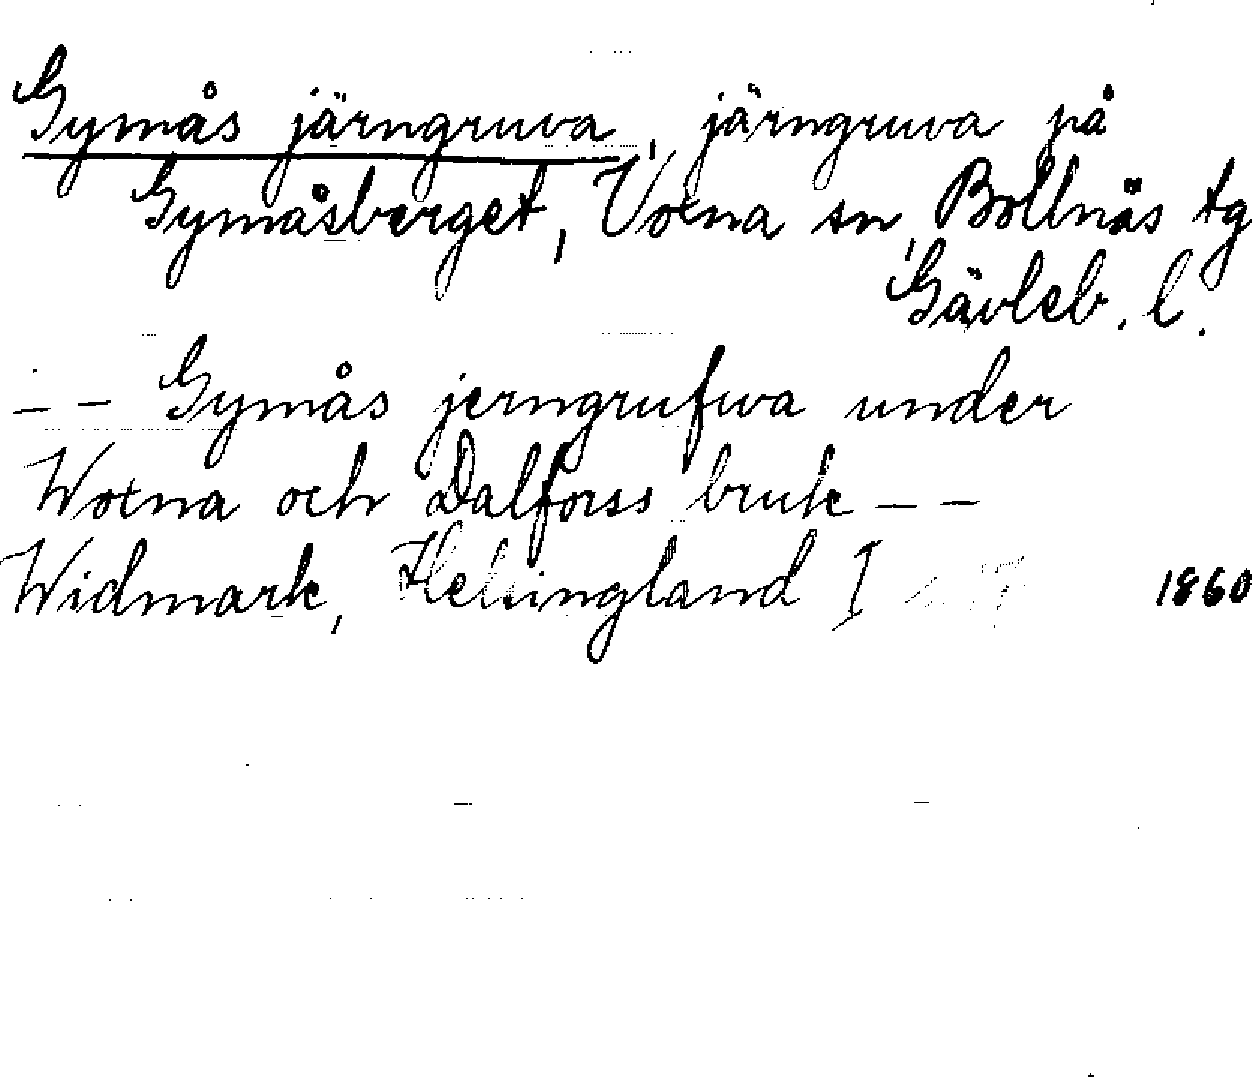 Gymås järngruva, järngruva på
Gymåsberget, Voxna sn, Bollnäs tg
Gävleb. l.
– – Gymås jerngrufwa under
Woxna och Dalforss bruk – –
Widmark, Helsingland I 1860